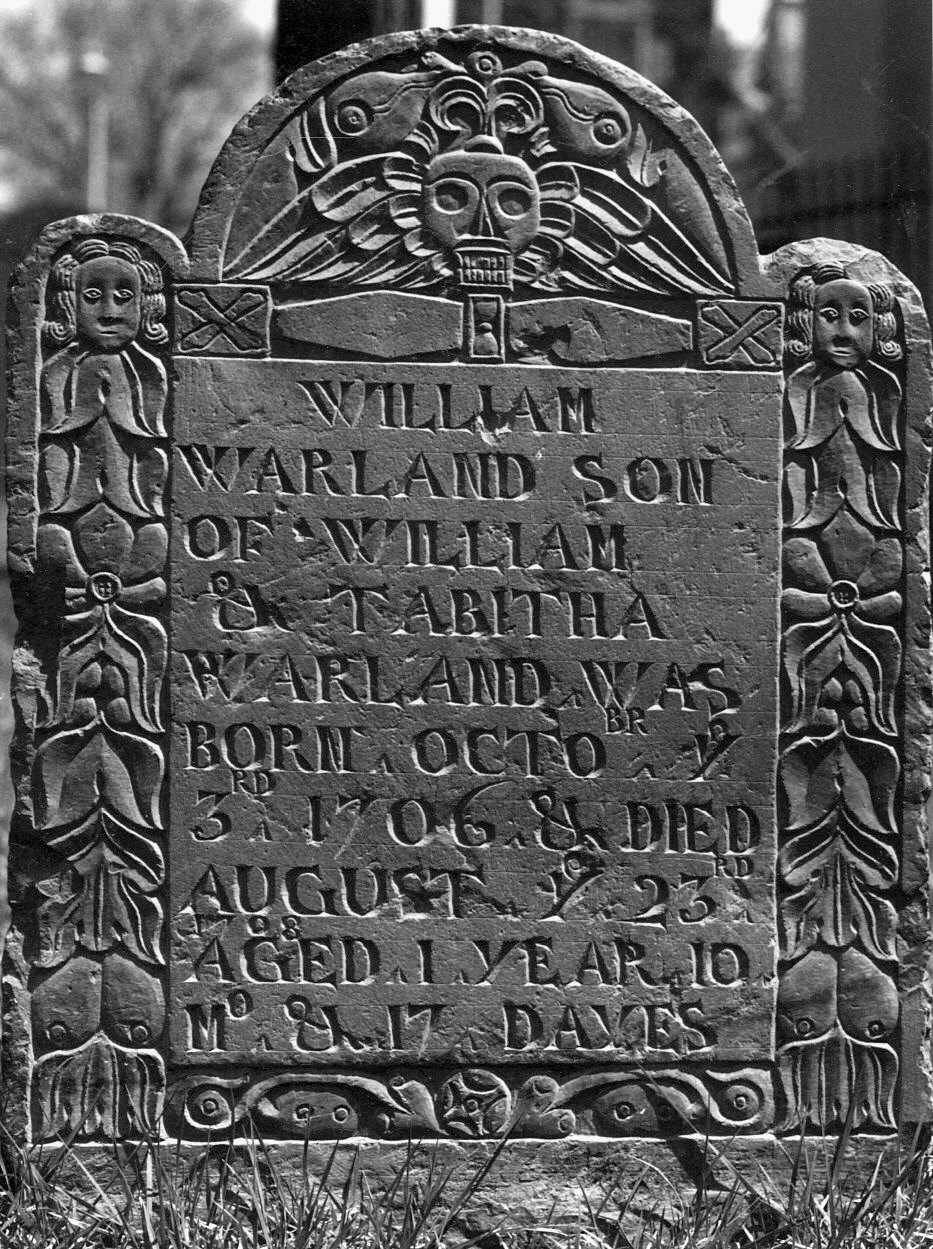 WILLIAM
WARLAND SON
OF WILLIAM
& TABITHA
WARLAND WAS
BORN. OCTOBR. yᵉ
3RD. 1706. & DIED
AUGUST. yᵉ. 23RD.
1708
AGED. 1. YEAR. 10.
Mo. &. 17. DAYES